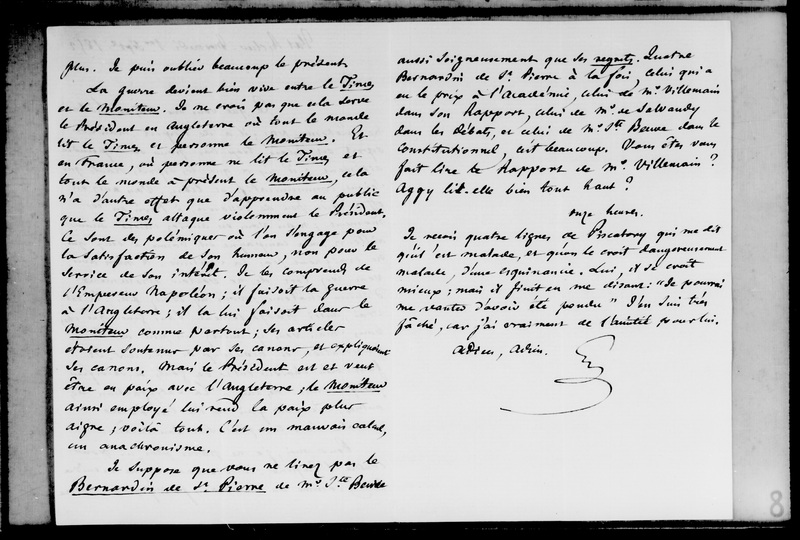 plus. Je puis oublier beaucoup le présent
La guerre devient bien vive entre le Times
et le Moniteur. Je ne crois pas que cela serve
le Président en Angleterre où tout le monde
lit le Times et personne le Moniteur. Et
en France, où personne ne lit le Times et
tout le monde à présent le Moniteur, cela
n'a d'autre effet que d'apprendre au public
que le Times attaque violemment le Président.
Ce sont des polémiques où l'on s'engage pour
la satisfaction de son humeur, non pour le
service de son intérêt. Je les comprends de
l'Empereur Napoléon; il faisoit la guerre
à l'Angleterre; il la lui faisoit dans le
Moniteur comme partout; ses articles
étoient soutenus par ses canons, et expliquoient
ses canons. Mais le Président est et veut
être en paix avec l'Angleterre; le Moniteur
ainsi employé lui rend la paix plus
aigre; voilà tout. C'est un mauvais calcul,
un anachronisme.
Je suppose que vous ne lirez pas le
Bernardin de St Pierre de Mr. Ste Beuve
aussi soigneusement que ses regrets. Quatre
Bernardin de St Pierre à la fois, celui qui a
eu le prix à l'Académie, celui de Mr. Villemain
dans son Rapport, celui de Mr. de Salvandy
dans les Débats, et celui de Mr. Ste Beuve dans le
Constitutionnel, c'est beaucoup. Vous êtes vous
fait lire le Rapport de Mr. Villemain?
Aggy lit-elle bien tout haut?
onze heures.
Je reçois quatre lignes de Piscatory qui me dit
qu'il s'est malade, et qu'on le croit dangereusement
malade, d'une esquinancie. Lui, il se croit
mieux; mais il finit en me disant: "Je pourrai
me vanter d'avoir été pendu" J'en suis très
fâché, car j'ai vraiment de l'amitié pour lui.
Adieu, Adieu.
8